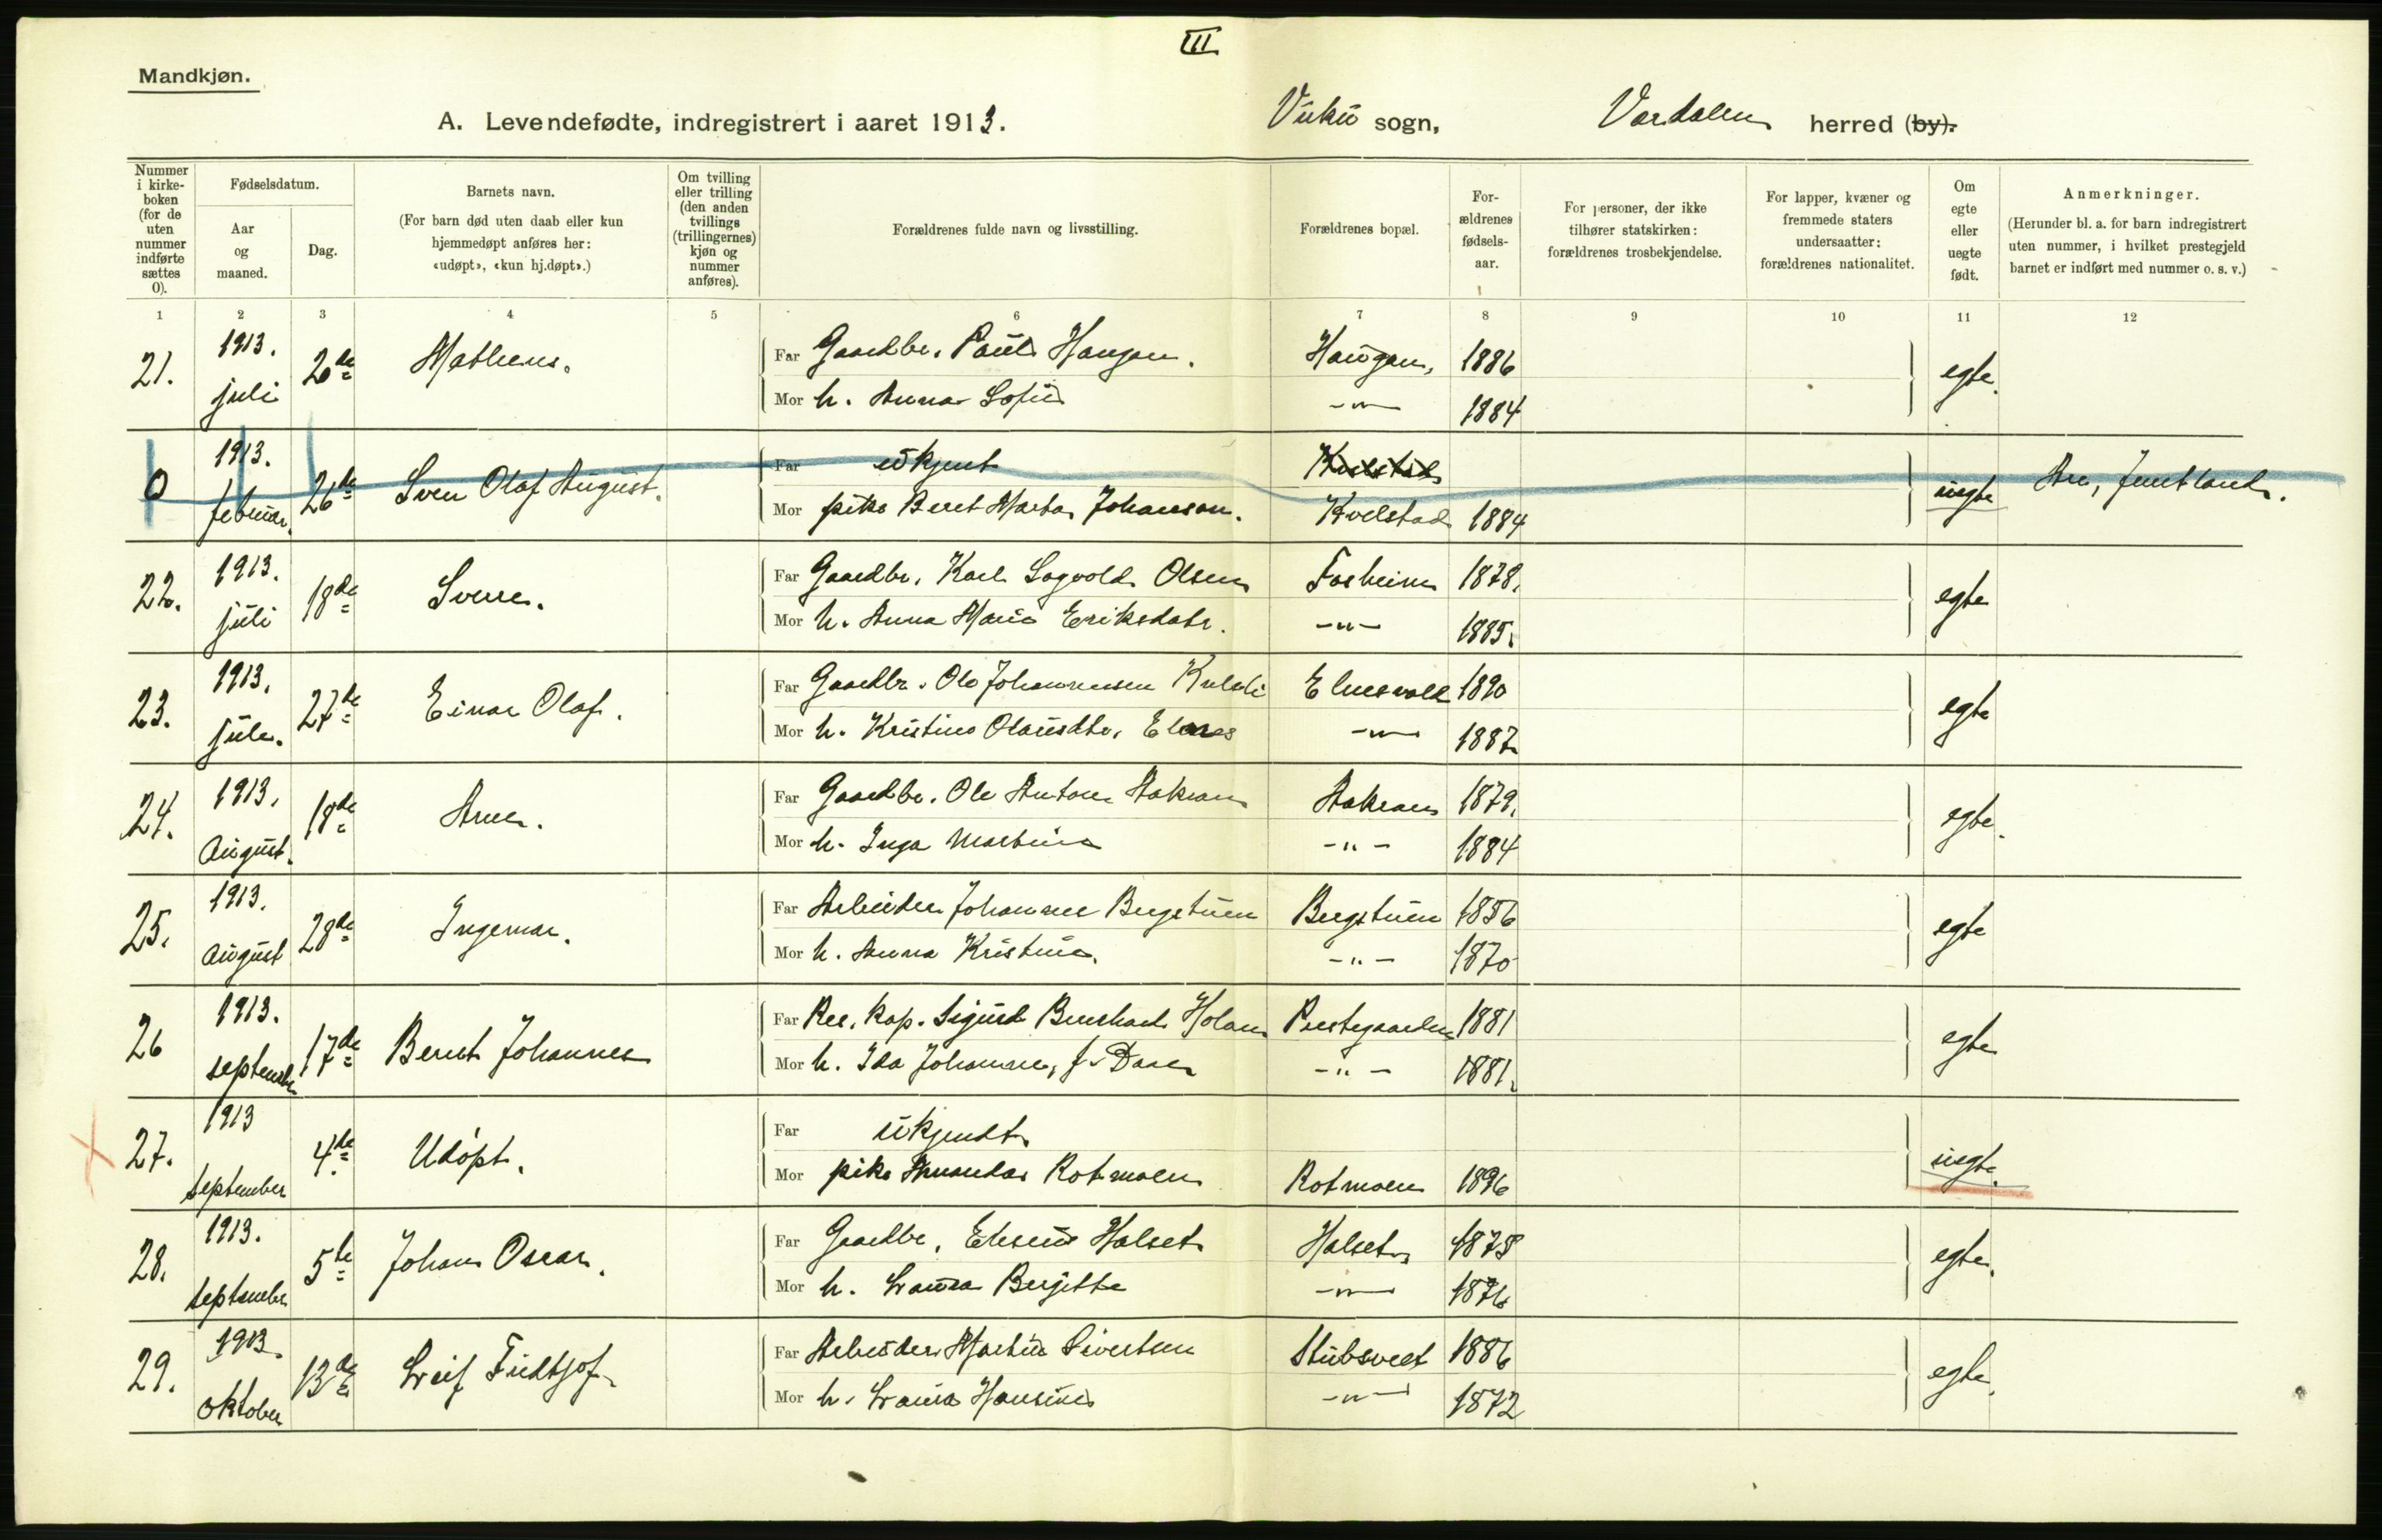 III
Mandkjøn.
A. Levendefødte, indregistrert i aaret 1913. Vuku sogn, Værdalen herred (by).
Nummer i kirkeboken (for de uten nummer indførte sættes 0).
Fødselsdatum.
Aar og maaned.
Dag.
Barnets navn.
(For barn død uten daab eller kun hjemmedøpt anføres her: «udøpt», «kun hj.døpt».)
Om tvilling eller trilling (den anden tvillings (trillingernes) kjøn og nummer anføres).
Forældrenes fulde navn og livsstilling.
Forældrenes bopæl.
Forældrenes fødselsaar.
For personer, der ikke tilhører statskirken: forældrenes trosbekjendelse.
For lapper, kvæner og fremmede staters undersaatter: forældrenes nationalitet.
Om egte eller uegte født.
Anmerkninger.
(Herunder bl. a. for barn indregistrert uten nummer, i hvilket prestegjeld barnet er indført med nummer o. s. v.)
1 2 3 4 5 6 7 8 9 10 11 12
21. 1913. juli 2de Matheus. Far Gaardbr. Paul Haugan. Haugan, 1886 egte.
Mor h. Anna Sofie -"- 1884
0 1913. februar. 26de Sven Olaf August. Far ukjent uegte Åre, Jemtland.
Mor pike Beret Marta Johanson. Kvelstad 1884
22. 1913. juli 18de Sverre. Far Gaardbr. Karl Sagvold Olsen Forheim 1878. egte
Mor h. Anna Maria Eriksdatr. -"- 1885.
23. 1913. juli. 27de Einar Olaf. Far Gaardbr. Ole Johannesen Kulsli Elnesvold 1890 egte
Mor h. Kristine Olausdtr. Elnes -"- 1887
24. 1913. August. 18de Arne. Far Gaardbr. Ole Anton Aakran Aakran 1879. egte.
Mor h. Inga Martina -"- 1884
25. 1913. August 28de Ingemar. Far Arbeider Johannes Bergstuen Bergstuen 1856 egte
Mor h. Anna Kristine. -"- 1870
26 1913. september 17de Bernt Johannes Far Res. kap. Sigurd Bernhard Holan Prestegaarden 1881 egte
Mor h. Ida Johanne, f. Daae -"- 1881.
27. 1913 september 4de Udøpt. Far ukjendt. uegte.
Mor pike Amanda Rotmoen Rotmoen 1896
28. 1913. september 5te Johan Oscar. Far Gaardbr. Eleseus Halset Halset 1878 egte.
Mor h. Laura Bergitte -"- 1876
29. 1913. oktober 13de Leif Fridtjof. Far Arbeider Martin Sivertsen Stubsveet 1886 egte.
Mor h. Laura Hansine -"- 1872